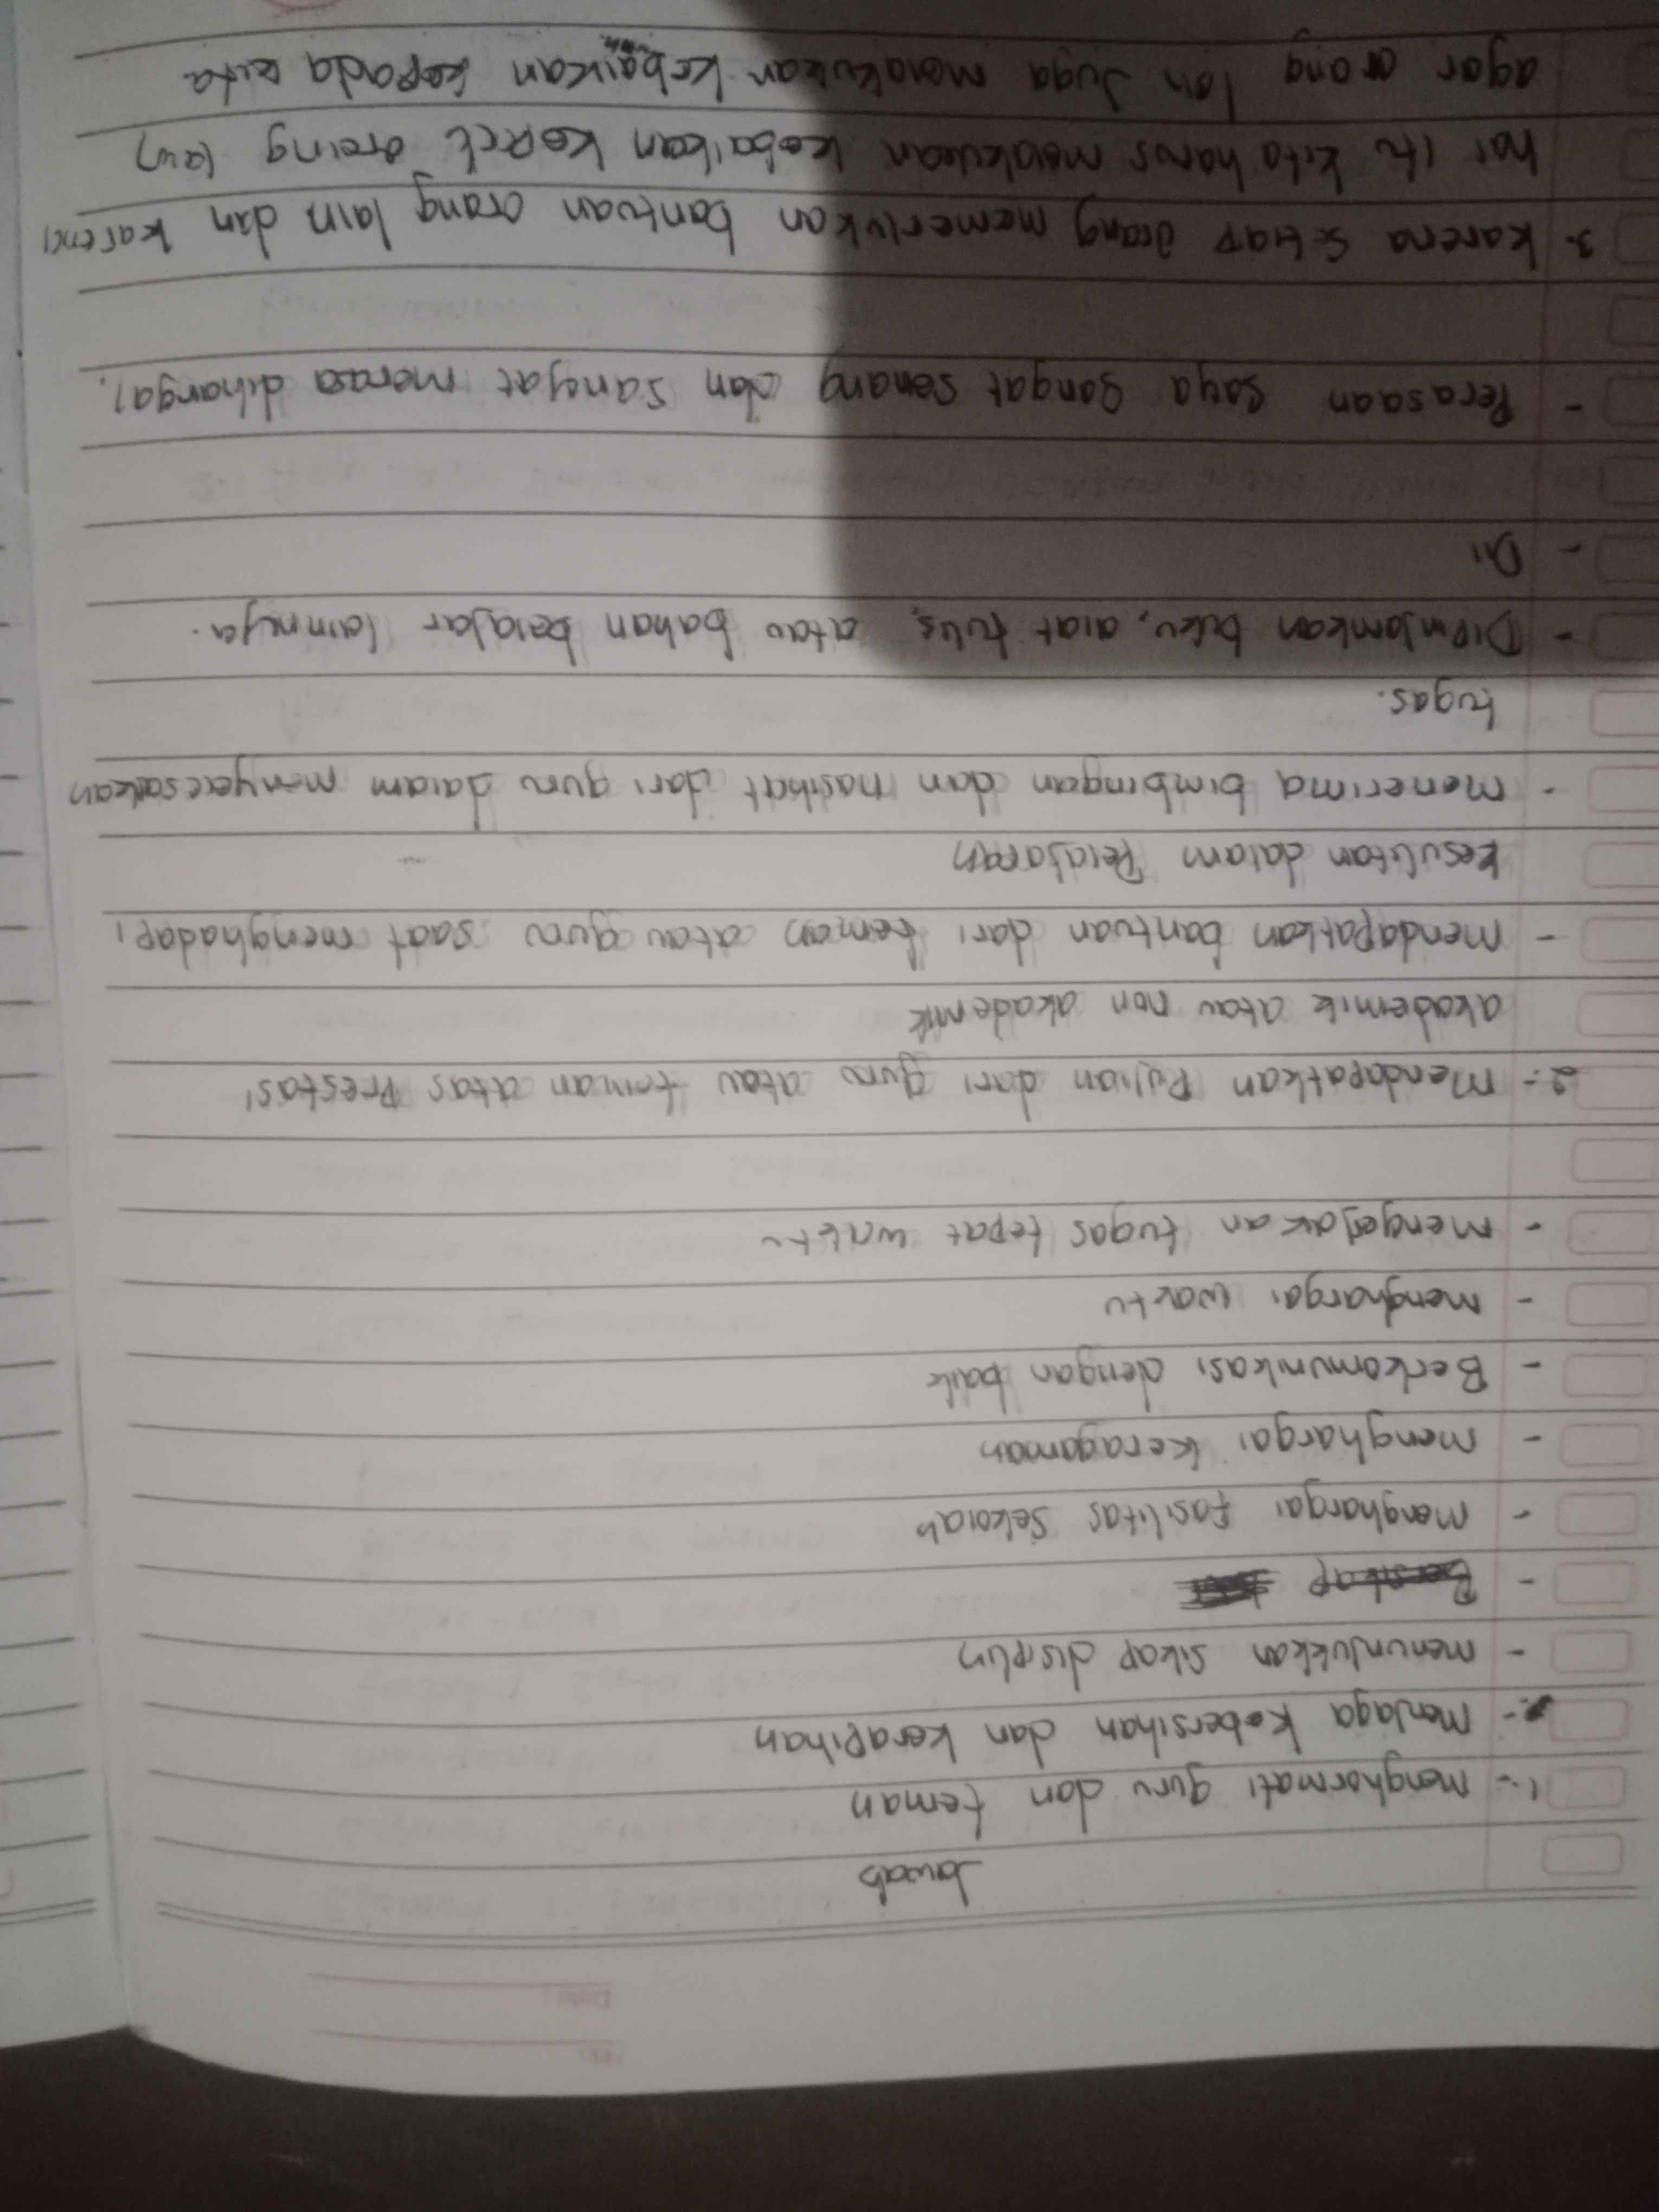 No.
Date
Jawab
1. - menghormati guru dan teman
- Menjaga kebersihan dan kerapihan
- menunjukkan sikap disiplin
-
- menghargai fasilitas sekolah
- menghargai keragaman
- Berkomunikasi dengan baik
- menghargai waktu
- mengerjakan tugas tepat waktu
2. - Mendapatkan Pujian dari guru atau teman atas Prestasi
akademik atau non akademik
- mendapatkan bantuan dari teman atau guru saat menghadapi
kesulitan dalam Pelajaran
- menerima bimbingan dan nasihat dari guru dalam menyelesaikan
tugas.
- Dipinjamkan buku, alat tulis, atau bahan belajar lainnya.
- Di
- Perasaan saya sangat senang dan sangat merasa dihargai.
3. karena setiap orang memerlukan bantuan orang lain dan karena
hal itu kita harus melakukan kebaikan orang lain
agar orang lain Juga melakukan kebaikan kepada kita